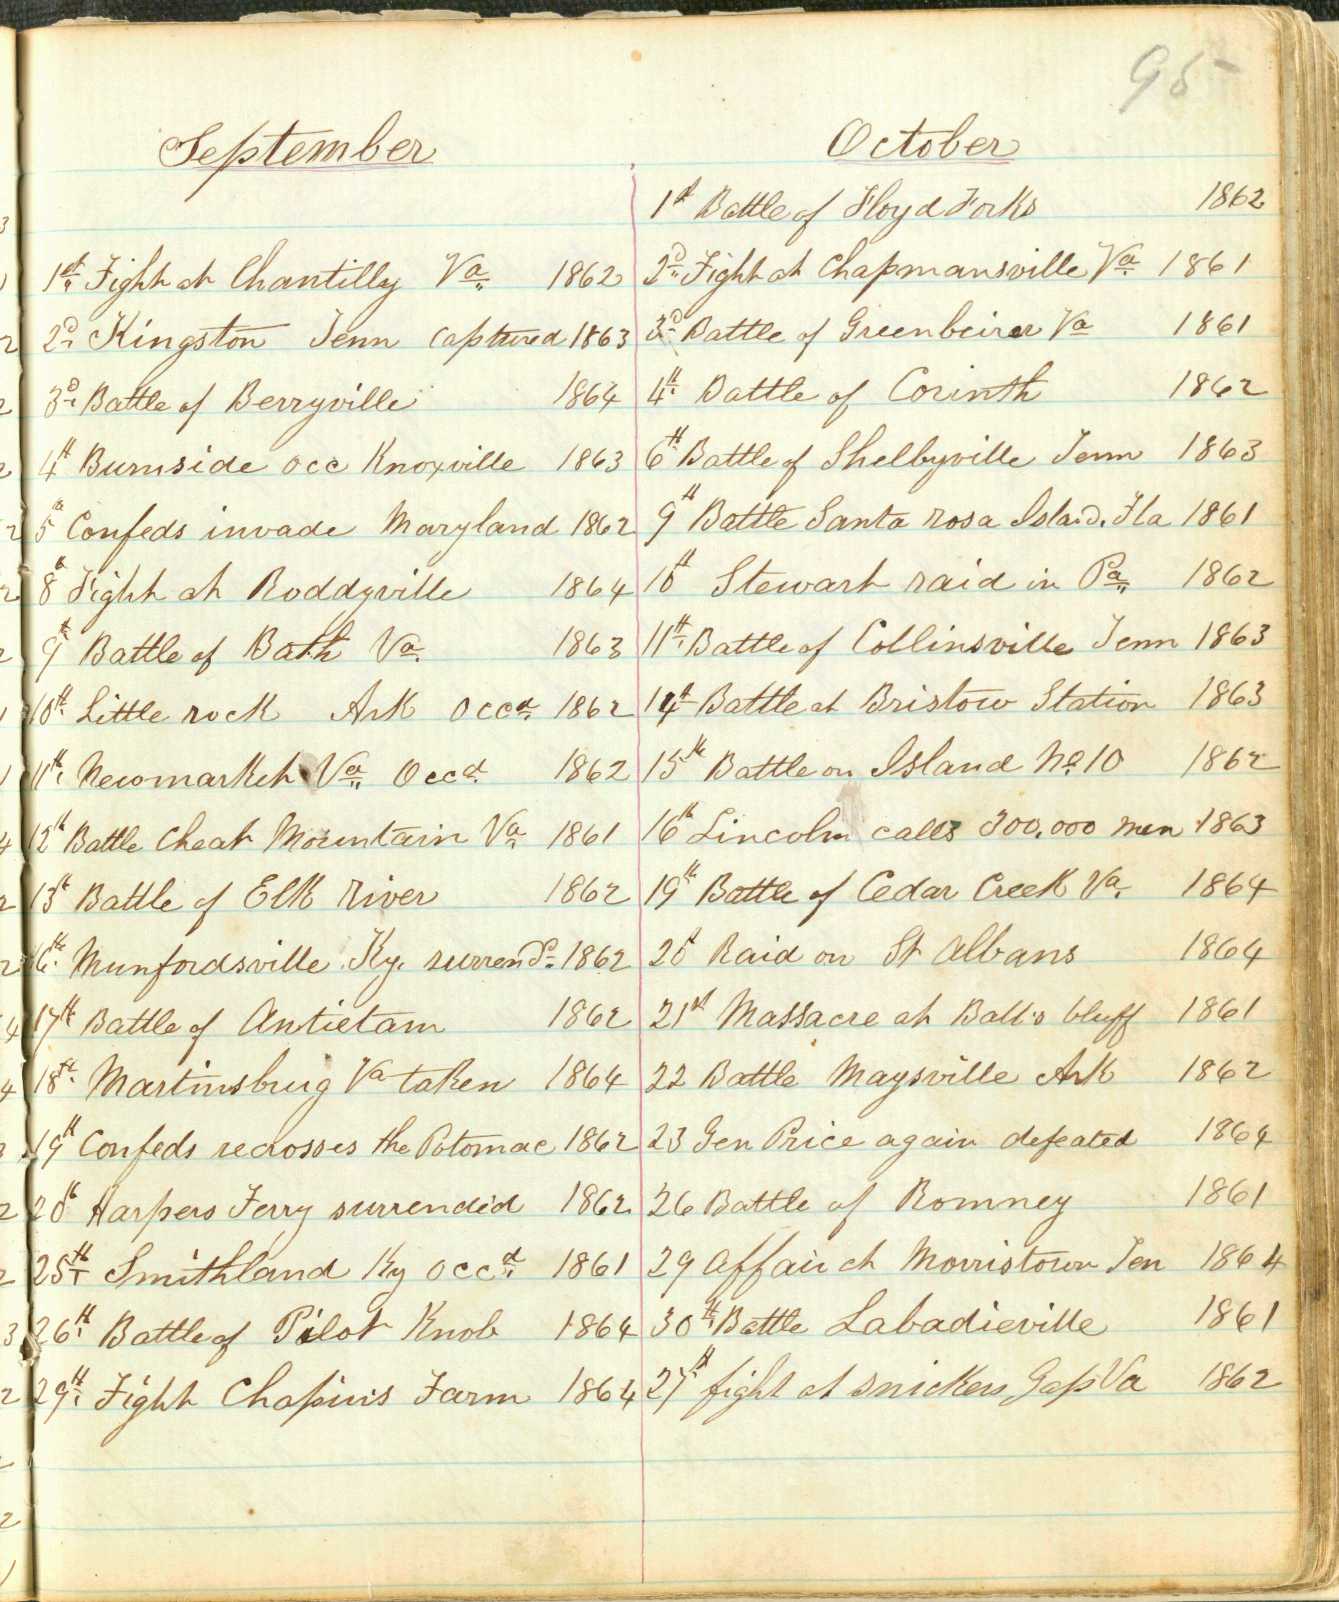 95
September
1st Fight at Chantilly Va 1862
2d Kingston Tenn captured 1863
3d Battle of Berryville 1864
4th Burnside occ Knoxville 1863
5th Confeds invade Maryland 1862
8th Fight at Roddyville 1864
9th Battle of Bath Va 1863
10th Little rock Ark occd 1862
11th Newmarket Va Occd 1862
12th Battle Cheat Mountain Va 1861
13th Battle of Elk River 1862
16th Munfordsville Ky. surrend 1862
17th Battle of Antietam 1862
18th Martinsburg Va taken 1864
19th Confeds recrosses the Potomac 1862
20th Harpers Ferry surrended 1862
25th Smithland Ky occd 1861
26th Battle of Pilot Knob 1864
29th Fight Chapins Farm 1864
October
1st Battle of Floyd Forks 1862
2d Fight at Chapmansville Va 1861
3d Battle of Greenbeirer Va 1861
4th Battle of Corinth 1862
6th Battle of Shelbyville Tenn 1863
9th Battle Santa rosa Isla.d. Fla 1861
10th Stewart raid in Pa 1862
11th Battle of Collinsville Tenn 1863
14th Battle at Bristow Station 1863
15th Battle on Island No 10 1862
16th Lincoln calls 300,000 men 1863
19th Battle of Cedar Creek Va. 1864
20th Raid on St Albans 1864
21st Massacre at Balls bluff 1861
22 Battle Maysville Ark 1862
23 Gen Price again defeated 1864
26 Battle of Romney 1861
29 Affair at Morristown Ten 1864
30th Battle Labadieville 1861
27th fight at snickers Gap Va 1862